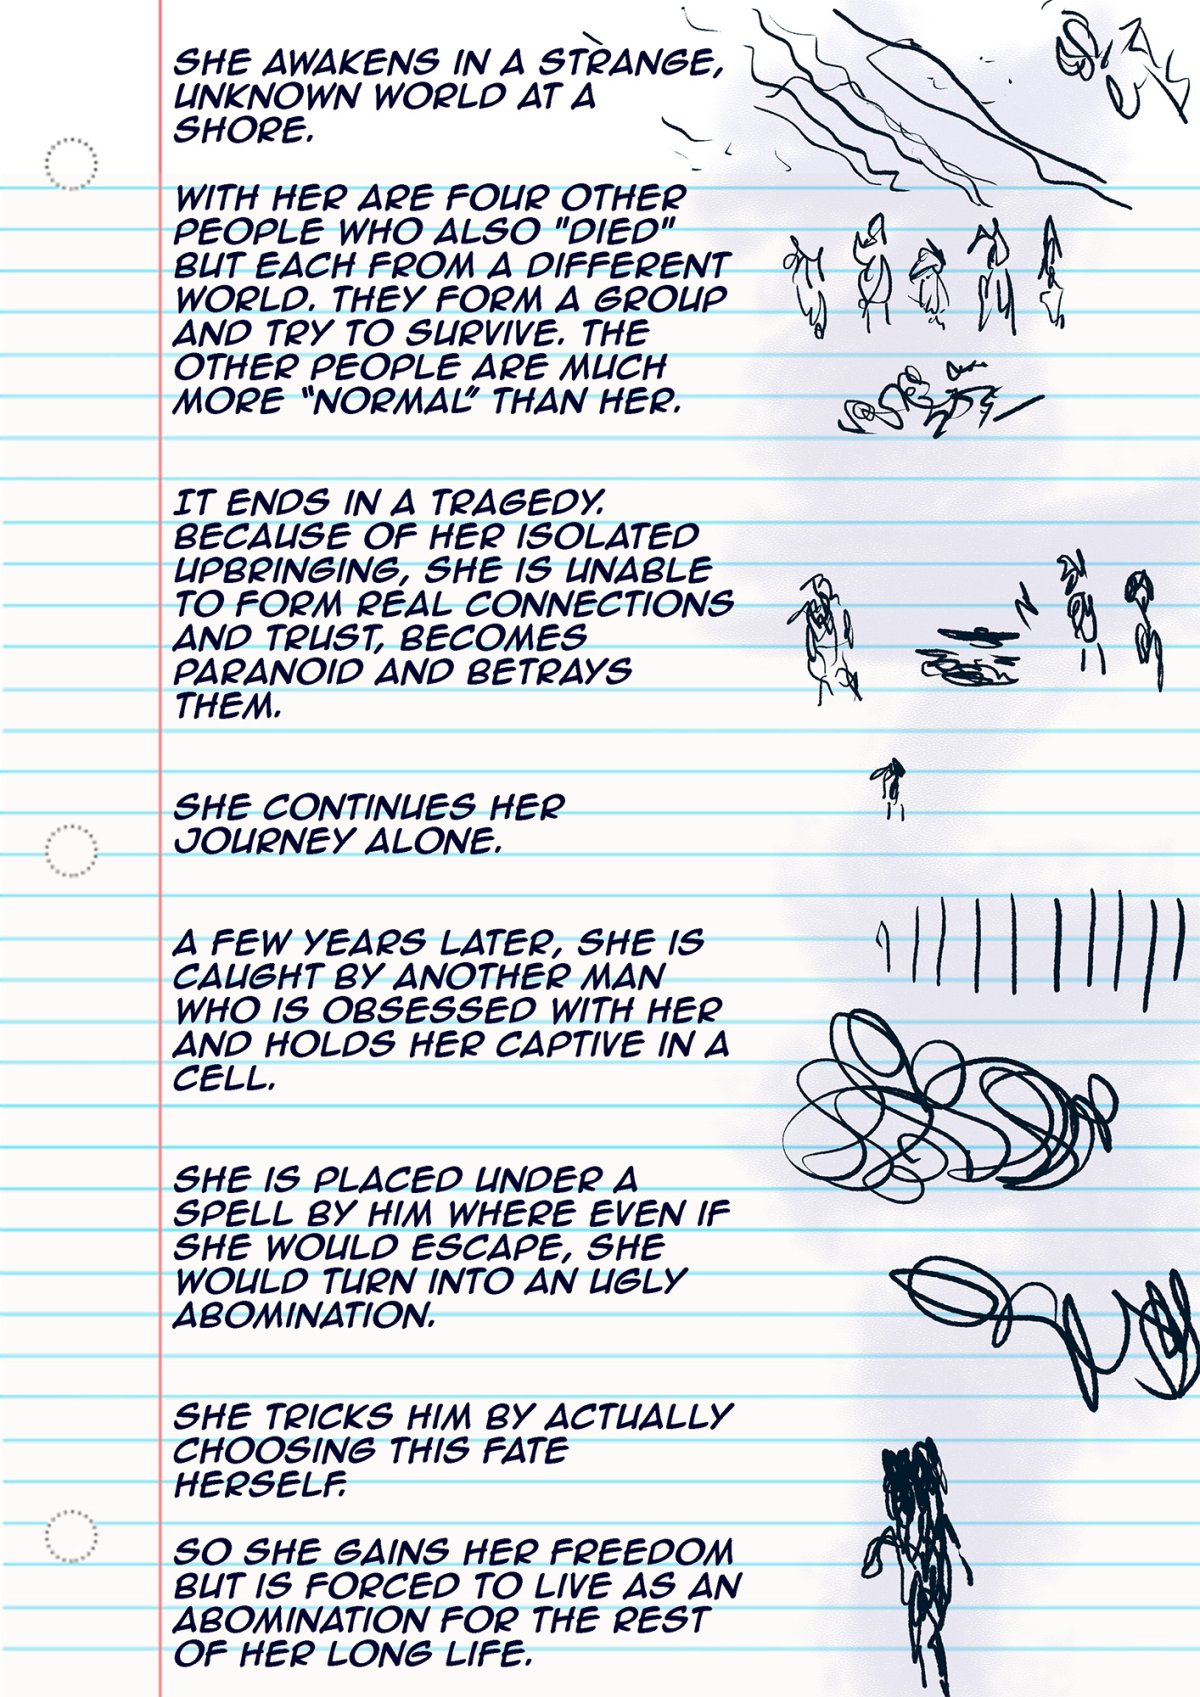 SHE AWAKENS IN A STRANGE,
UNKNOWN WORLD AT A
SHORE.
WITH HER ARE FOUR OTHER
PEOPLE WHO ALSO "DIED"
BUT EACH FROM A DIFFERENT
WORLD. THEY FORM A GROUP
AND TRY TO SURVIVE. THE
OTHER PEOPLE ARE MUCH
MORE “NORMAL” THAN HER.
IT ENDS IN A TRAGEDY.
BECAUSE OF HER ISOLATED
UPBRINGING, SHE IS UNABLE
TO FORM REAL CONNECTIONS
AND TRUST, BECOMES
PARANOID AND BETRAYS
THEM.
SHE CONTINUES HER
JOURNEY ALONE.
A FEW YEARS LATER, SHE IS
CAUGHT BY ANOTHER MAN
WHO IS OBSESSED WITH HER
AND HOLDS HER CAPTIVE IN A
CELL.
SHE IS PLACED UNDER A
SPELL BY HIM WHERE EVEN IF
SHE WOULD ESCAPE, SHE
WOULD TURN INTO AN UGLY
ABOMINATION.
SHE TRICKS HIM BY ACTUALLY
CHOOSING THIS FATE
HERSELF.
SO SHE GAINS HER FREEDOM
BUT IS FORCED TO LIVE AS AN
ABOMINATION FOR THE REST
OF HER LONG LIFE.